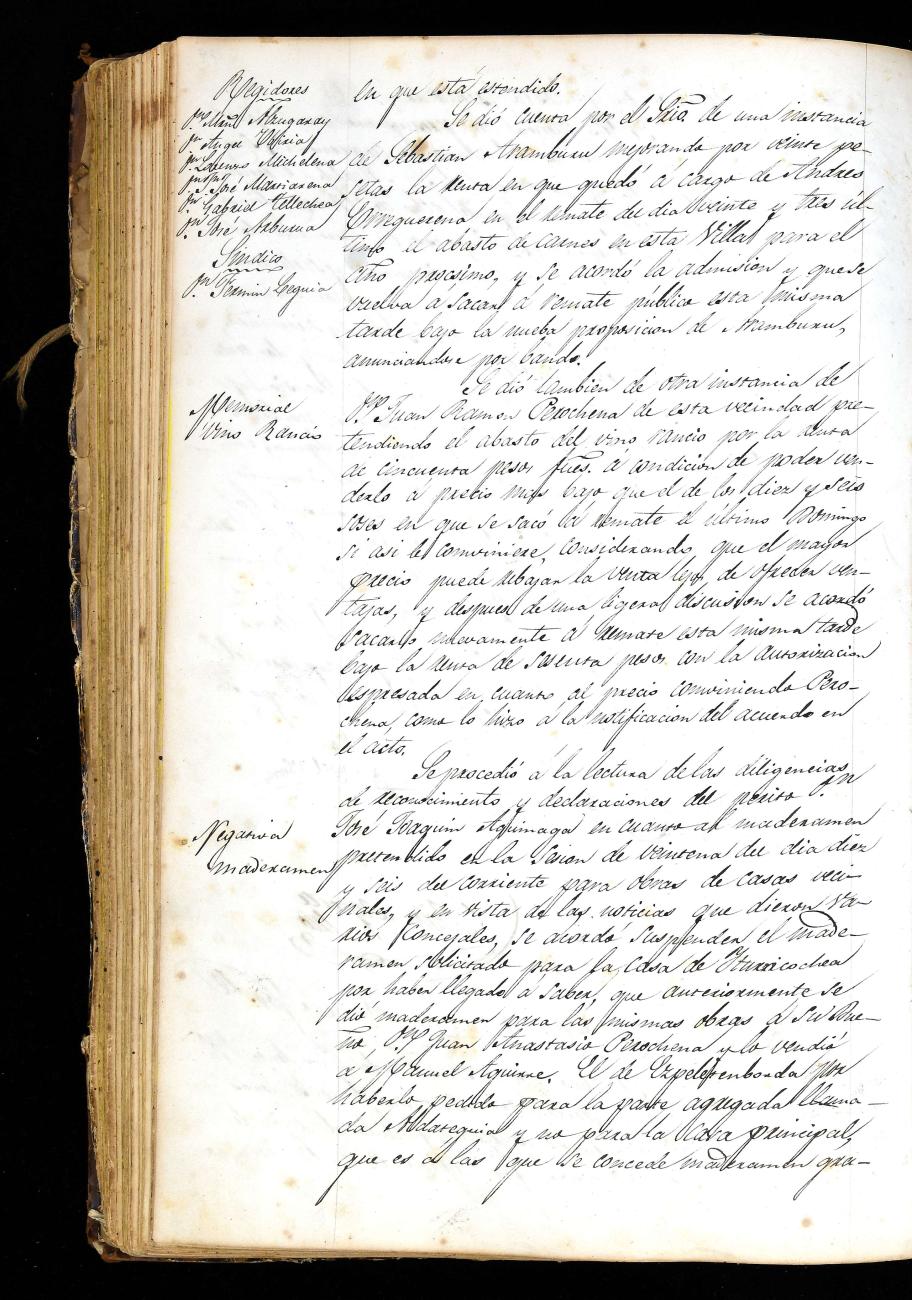 Regidores
Dn. Manl. Alzugaray
Dn. Angel Ubiria
Dn. Lorenzo Michelena
José Mariarena
Dn. Gabriel Tellechea
Dn. José Arburua
Síndico
Dn. Fermin Leguia
en que está estendido.
Se dió cuenta por el Srio. de una instancia
de Sebastian Aramburu mejorando por veinte pe-
setas la renta en que quedó á cargo de Andres
en el remate del dia veinte y tres úl-
timo el abasto de carnes en esta Villa para el
Año procsimo, y se acordó la admision y que se
vuelva á sacar á remate publico esta misma
tarde bajo la nueba proposicion de Aramburu,
anunciandose por bando.
Memorial
Vino Rancio
Se dió tambien de otra instancia de
Dn. Juan Ramon Perochena de esta vecindad pre-
tendiendo el abasto del vino rancio por la renta
de cincuenta pesos fues. á condicion de poder ven-
derlo á precio mas bajo que el de los diez y seis
en que se sacó á remate el último Domingo
si asi le conviniere, considerando que el mayor
precio puede rebajar la venta lejos de ofrecer ven-
tajas, y despues de una ligera discusion se acordó
sacarlo nuevamente á remate esta misma tarde
bajo la renta de sesenta pesos con la autorizacion
espresada en cuanto al precio conviniendo Pero-
chena, como lo hizo á la notificacion del acuerdo en
el acto.
Negativa
maderamen
Se procedió á la lectura de las diligencias
de reconocimiento y declaraciones del perito Dn.
José Joaquin Aguinaga en cuanto al maderamen
pretendido en la Sesion de veintena del dia diez
y seis del corriente para obras de casas veci-
nales, y en vista de las noticias que dieron va-
rios Concejales, se acordó suspender el made-
ramen solicitado para la casa de Yturricochea
por haber llegado á saber, que anteriormente se
dió maderamen para las mismas obras á su Due-
ño, Dn. Juan Anastasio Perochena y lo vendió
á Manuel Aguirre. El de Ezpeletenborda por
haberlo pedido para la parte agregada llama-
da Aldareguia y no para la casa principal,
que es á las que se concede maderamen gra-